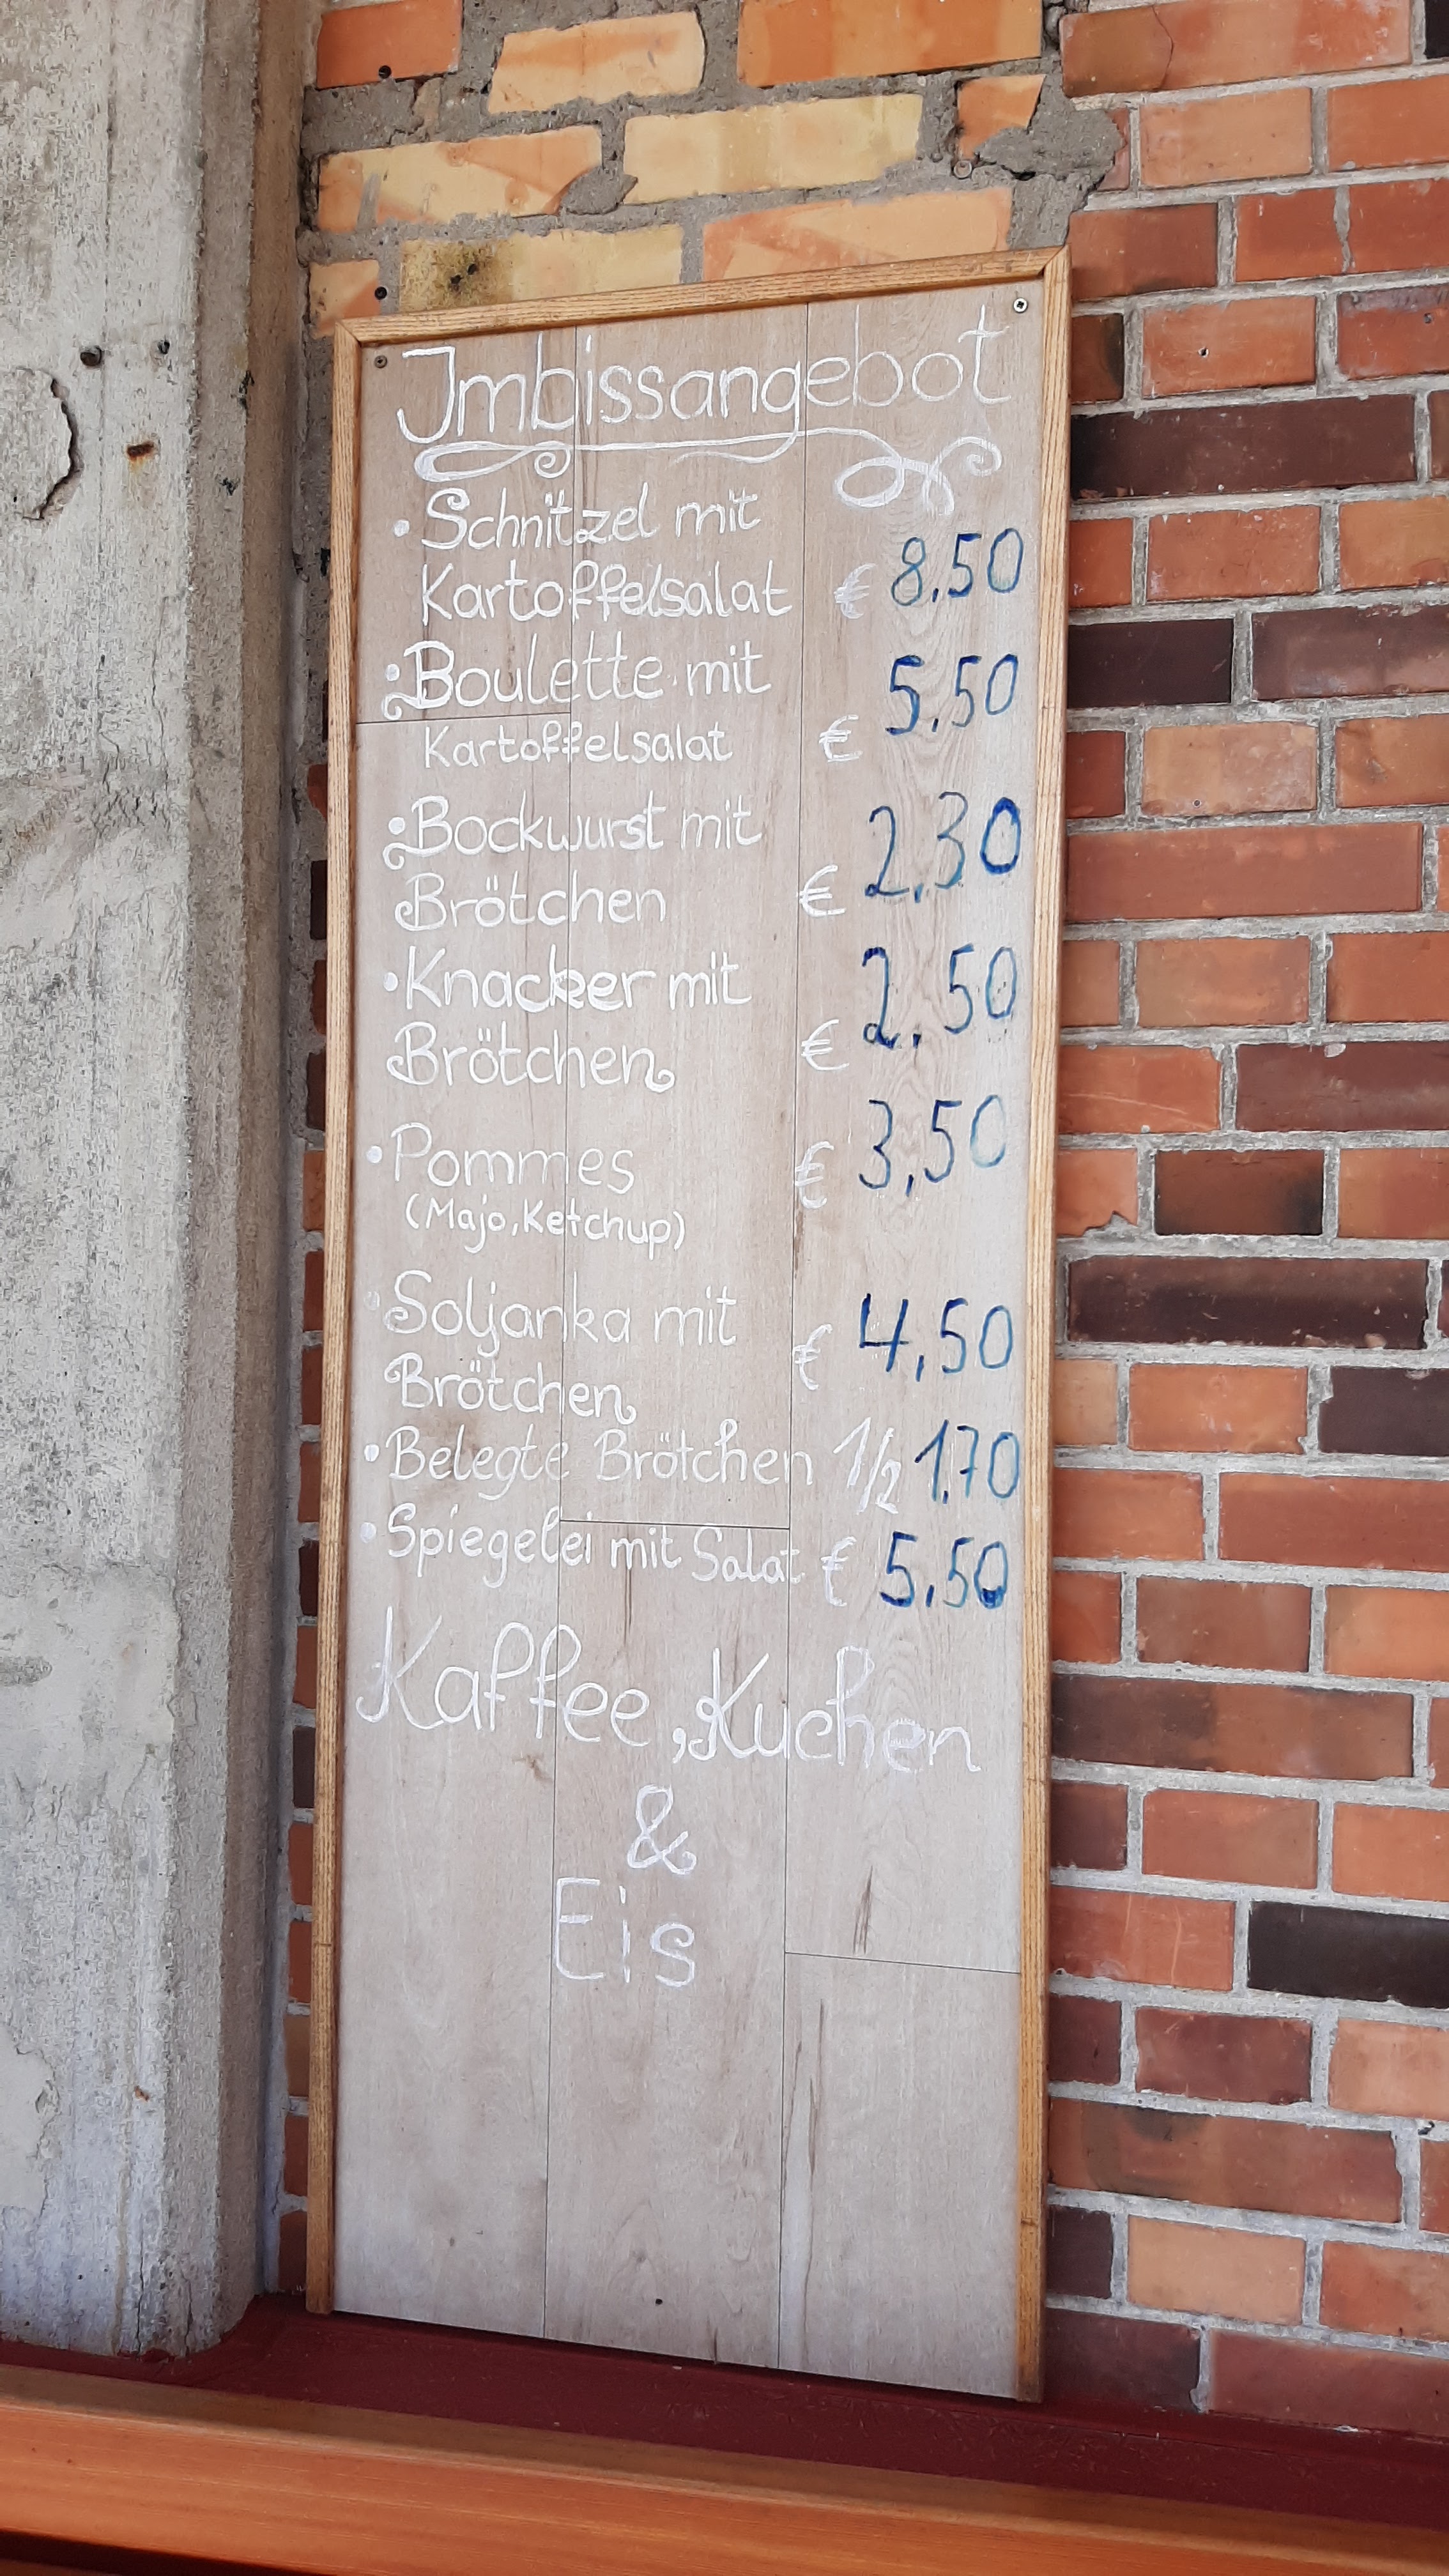 Imbissangebot
• Schnitzel mit
Kartoffelsalat € 8.50
• Boulette mit 5,50
Kartoffelsalat €
• Bockwurst mit 2,30
Brötchen €
• Knacker mit 2,50
Brötchen €
• Pommes € 3,50
(Majo, Ketchup)
• Soljanka mit € 4,50
Brötchen
• Belegte Brötchen 1/2 1,70
• Spiegelei mit Salat € 5,50
Kaffee, Kuchen
&
Eis